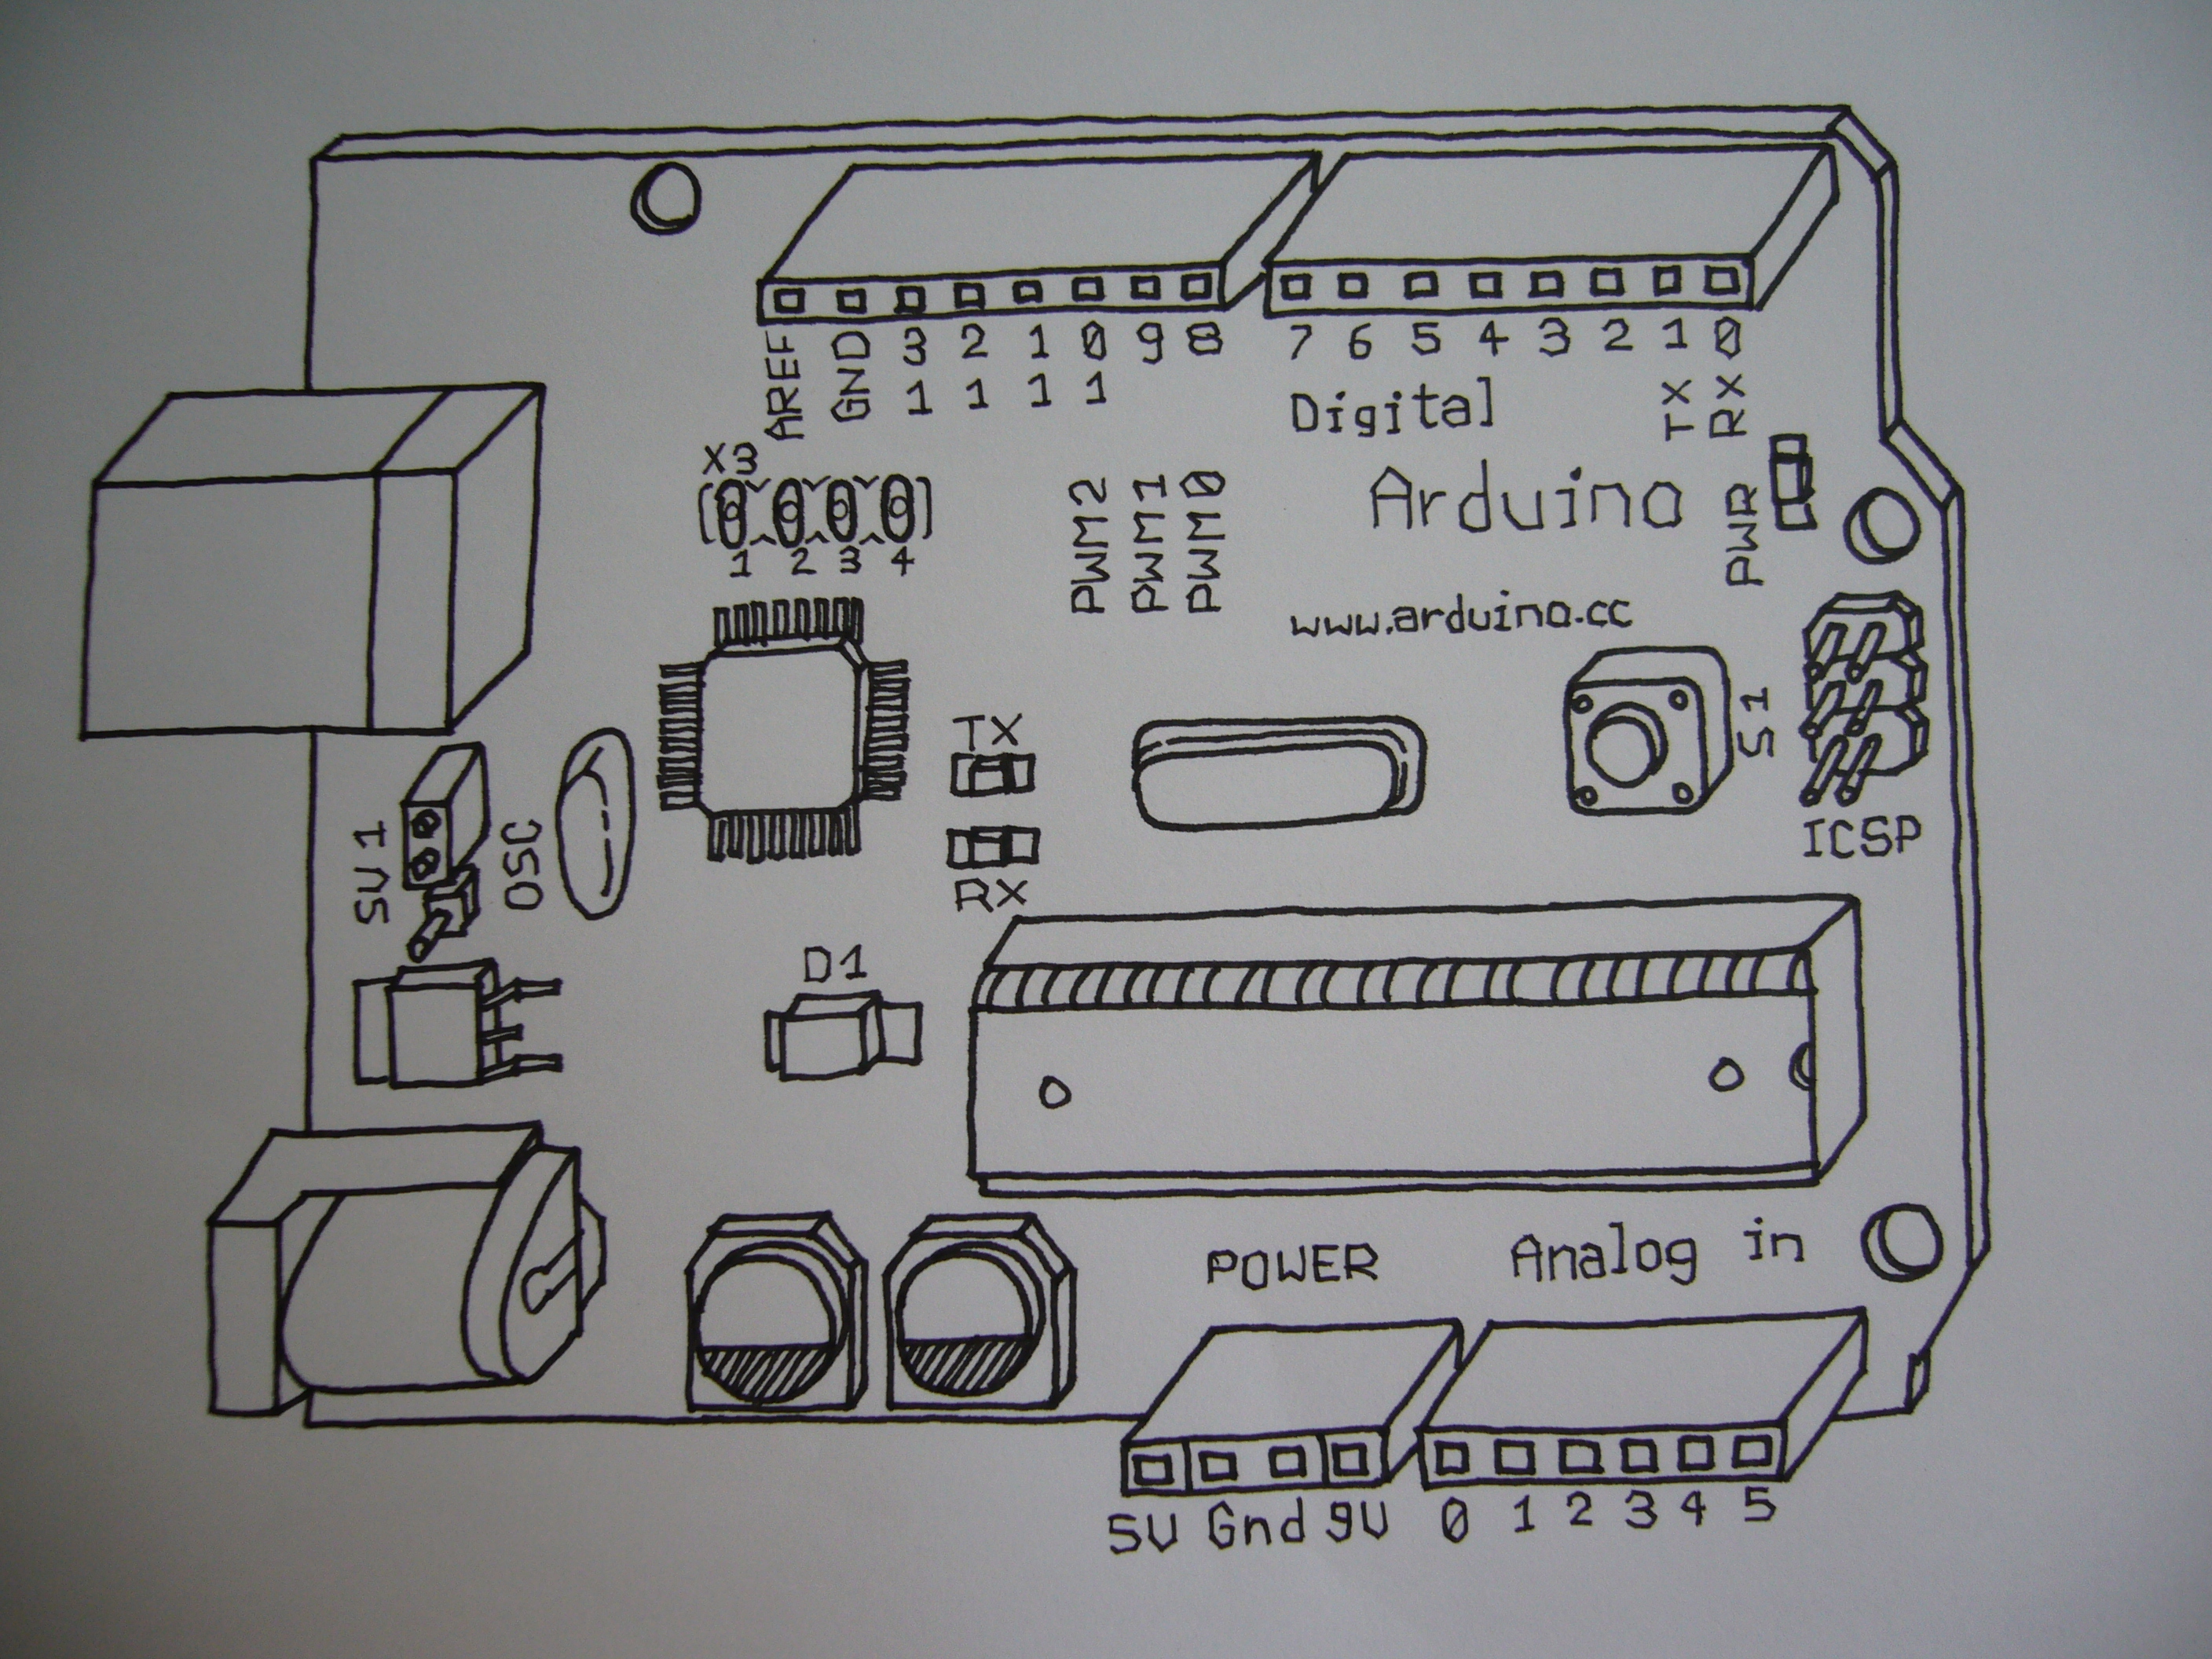 AREF GND 3 2 1 0 9 8 7 6 5 4 3 2 1 0
1 1 1 1
Digital
TX
RX
X3
1 2 3 4
PWM2
PWM1
PWM0
Arduino
PWR
www.arduino.cc
TX
S1
SV1
OSC
ICSP
RX
D1
POWER
Analog in
5V Gnd 9V 0 1 2 3 4 5